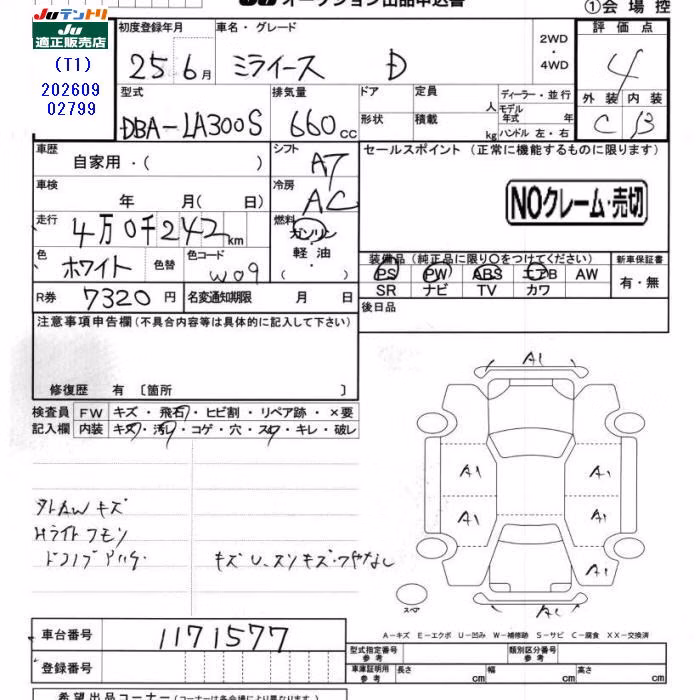 JUテントリ
JU
適正販売店
(T1)
202609
02799
オークション出品申込書
①会場控
初度登録年月
25 6月
車名・グレード
ミライース D
2WD
・
4WD
評価点
4
外装 内装
C B
型式
DBA-LA300S
排気量
660cc
ドア
形状
定員 人
積載 kg
ディーラー・並行
モデル年式 年
ハンドル 左・右
車歴
自家用・( )
シフト
AT
セールスポイント(正常に機能するものに限ります)
車検
年 月(日)
冷房
AC
NOクレーム・売切
走行
4万0千242km
燃料
ガソリン
・
軽油
・
( )
色
ホワイト
色替
色コード
W09
装備品(純正品に限り〇をつけてください)
PS PW ABS エアB AW
SR ナビ TV カワ
新車保証書
有・無
R券
7320円
名変通知期限 月 日
後日品
注意事項申告欄(不具合内容等は具体的に記入して下さい)
修復歴 有〔箇所 〕
検査員
記入欄
FW キズ・飛石・ヒビ割・リペア跡・×要
内装 キズ・汚レ・コゲ・穴・スレ・キレ・破レ
A1
A1 A1
A1 A1
A1
A1
スペア
外AWキズ
Hライトクモリ
キズU.スリキズ・ツヤなし
A-キズ E-エクボ U-凹み W-補修跡 S-サビ C-腐食 XX-交換済
車台番号
1171577
登録番号
型式指定番号
参考
類別区分番号
参考
車庫証明用
参考
長さ cm 幅 cm 高さ cm
希望出品コーナー(コーナーは各会場により異なります)